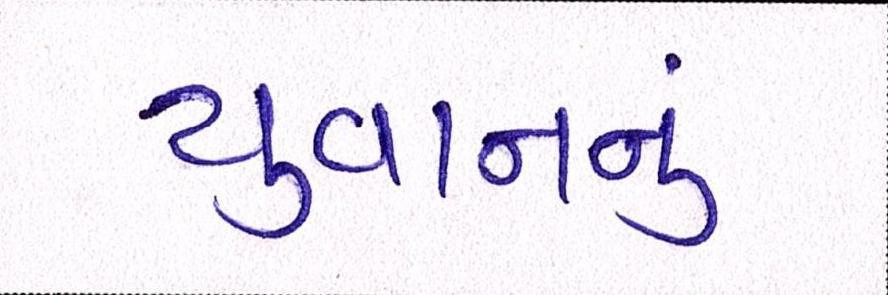 યુવાનનું